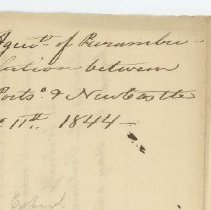 Agreet. of Perambu-
lation between
Portso. & NewCastle
11th. 1844 -